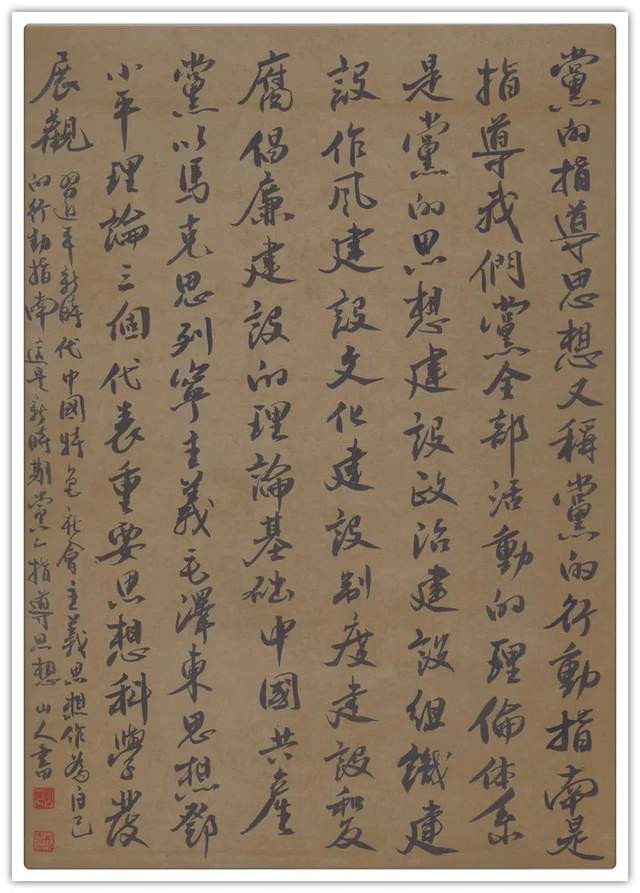 黨的指導思想又稱黨的行動指南是
指導我們黨全部活動的理倫体系
是黨的思想建設政治建設組織建
設作風建設文化建設制度建設和反
腐倡廉建設的理論基础中國共產
黨以馬克思列寧主義毛澤東思想鄧
小平理論三個代表重要思想科學發
展觀
習近平新時代中國特色社會主義思想作為自己
的行動指南這是新時期黨之指導思想 山人書